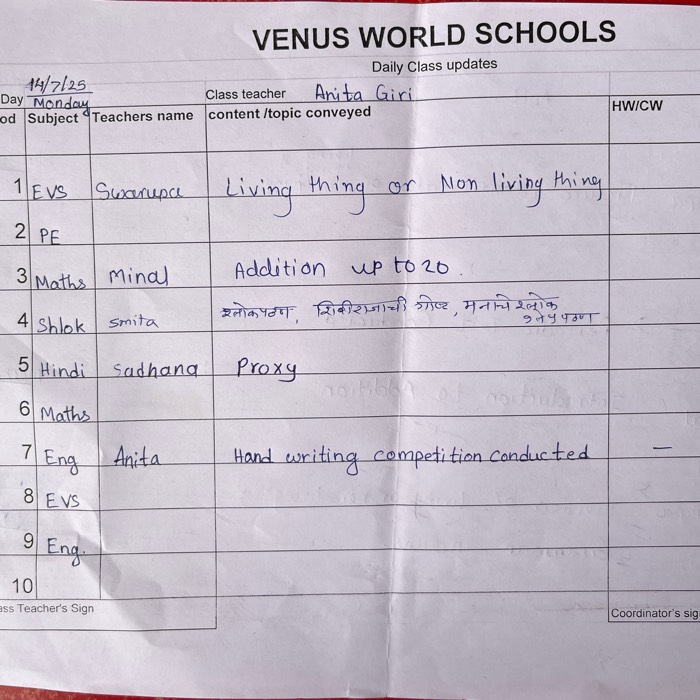 VENUS WORLD SCHOOLS
Daily Class updates
14/7/25
Day Monday Class teacher Anita Giri
od Subject Teachers name content /topic conveyed HW/CW
1 EVS Swarupa Living thing or Non living thing
2 PE
3 Maths Minal Addition up to 20.
4 Shlok Smita श्लोकपठण, शिबीराजाची गोष्ट, मनाचे श्लोक
१ ते ५ पठण
5 Hindi Sadhana Proxy
6 Maths
7 Eng Anita Hand writing competition conducted –
8 EVS
9 Eng.
10
ass Teacher's Sign Coordinator's sig